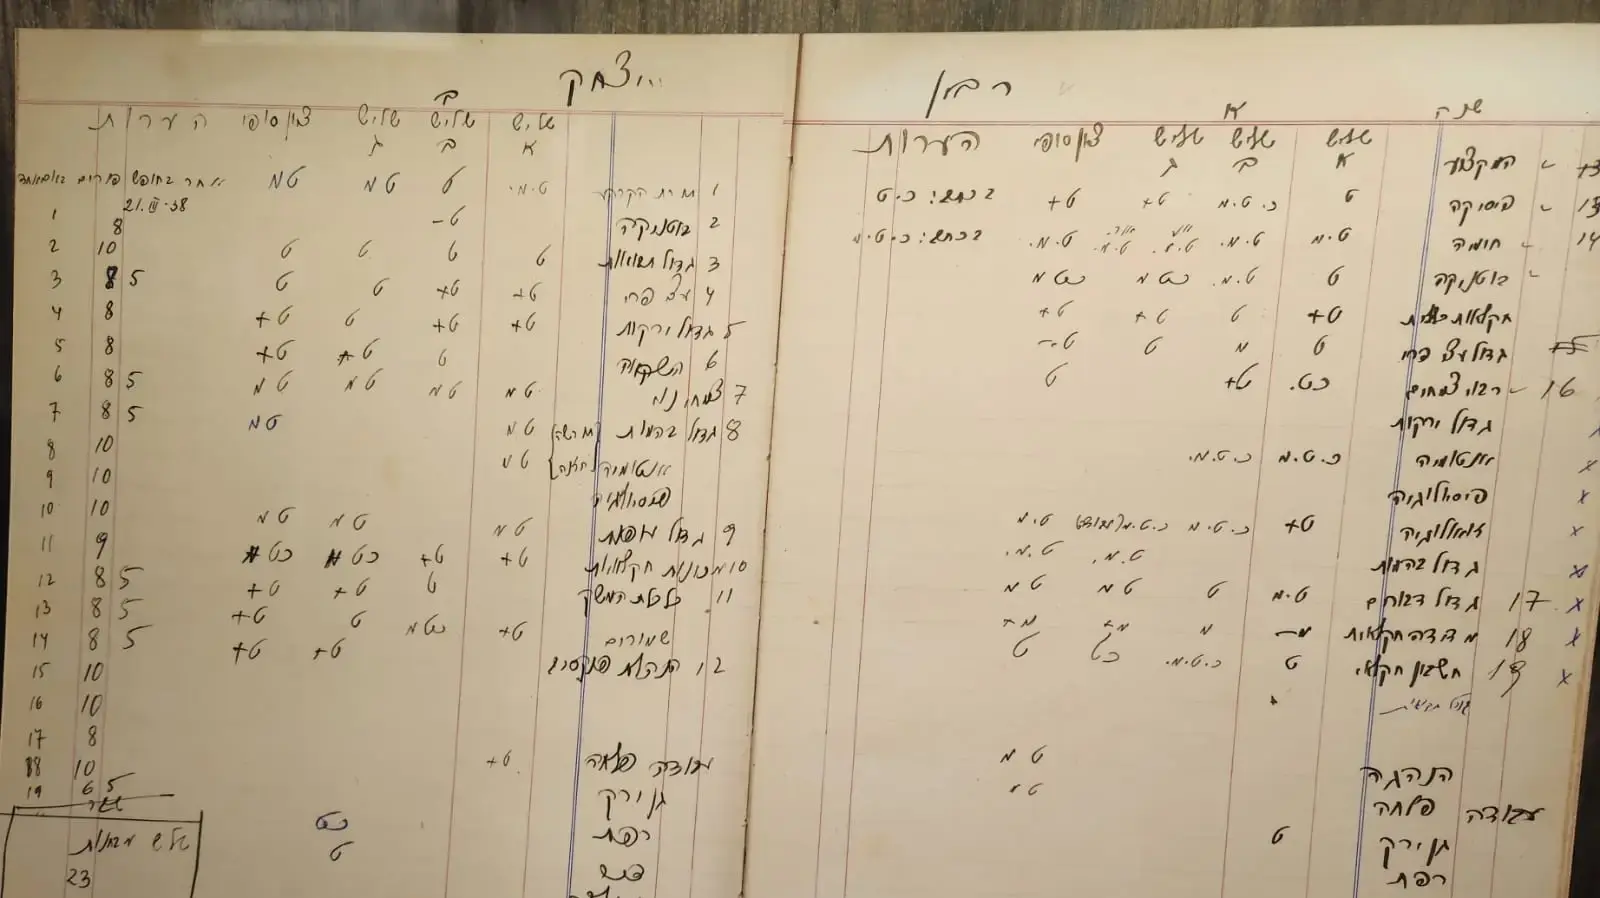 רבין יצחק
שנה א
המקצוע שליש א שליש ב שליש ג ציון סופי הערות
13 פיסיקה ט כ.ט.מ ט+ ט+ בכתב: כ.ט
14 חימיה ט.מ ט.מ. ט.מ. ט.מ. ט.מ. בכתב: כ.ט.מ
בוטניקה ט ט.מ. כטמ כטמ
חקלאות כללית ט+ ט ט+ ט+
גדול עצי פרי ט מ ט ט-
16 רבוי צמחים כט. ט+ ט
גדול ירקות
אנטומיה כ.ט.מ כ.ט.מ.
פיסיולוגיה
זואולוגיה ט+ כ.ט.מ כ.ט.מ ט.מ
גדול בהמות ט.מ. ט.מ.
17 גדול דבורים ט.מ ט ט מ ט מ
18 מדידה חקלאית מ- מ מ+ מ+
19 חשבון חקלאי ט כ.ט.מ. כט ט
הנהגה ט מ
עבודה פלחה
גן ירק ט
רפת
ב
שליש א שליש ב שליש ג ציון סופי הערות
1 תורת הקרקע ט.מ. ט ט מ ט מ
2 בוטניקה ט-
21.III.38
3 גדול תבואות ט ט ט ט
4 עצי פרי ט+ ט+ ט ט
5 גדול ירקות ט+ ט+ ט ט+
6 השקאה ט ט+ ט+
7 צמחי נוי ט מ ט מ ט מ ט מ
8 גדול בהמות ט מ ט מ
אנטומיה ט מ
פיסיולוגיה
9 גדול עופות ט מ ט מ ט מ
10 מכונות חקלאיות ט+ ט+ כט כט
11 כלכלת המשק ט ט+ ט+
שמורים ט+ כטמ ט ט+
12 הנהלת פנקסים ט+ ט+
עבודה פלחה ט+
גן ירק
רפת כט
ט
1 8
2 10
3 8 5
4 8
5 8
6 8 5
7 8 5
8 10
9 10
10 10
11 9
12 8 5
13 8 5
14 8 5
15 10
16 10
17 8
18 10
19 6 5
שלש מבחנות
23